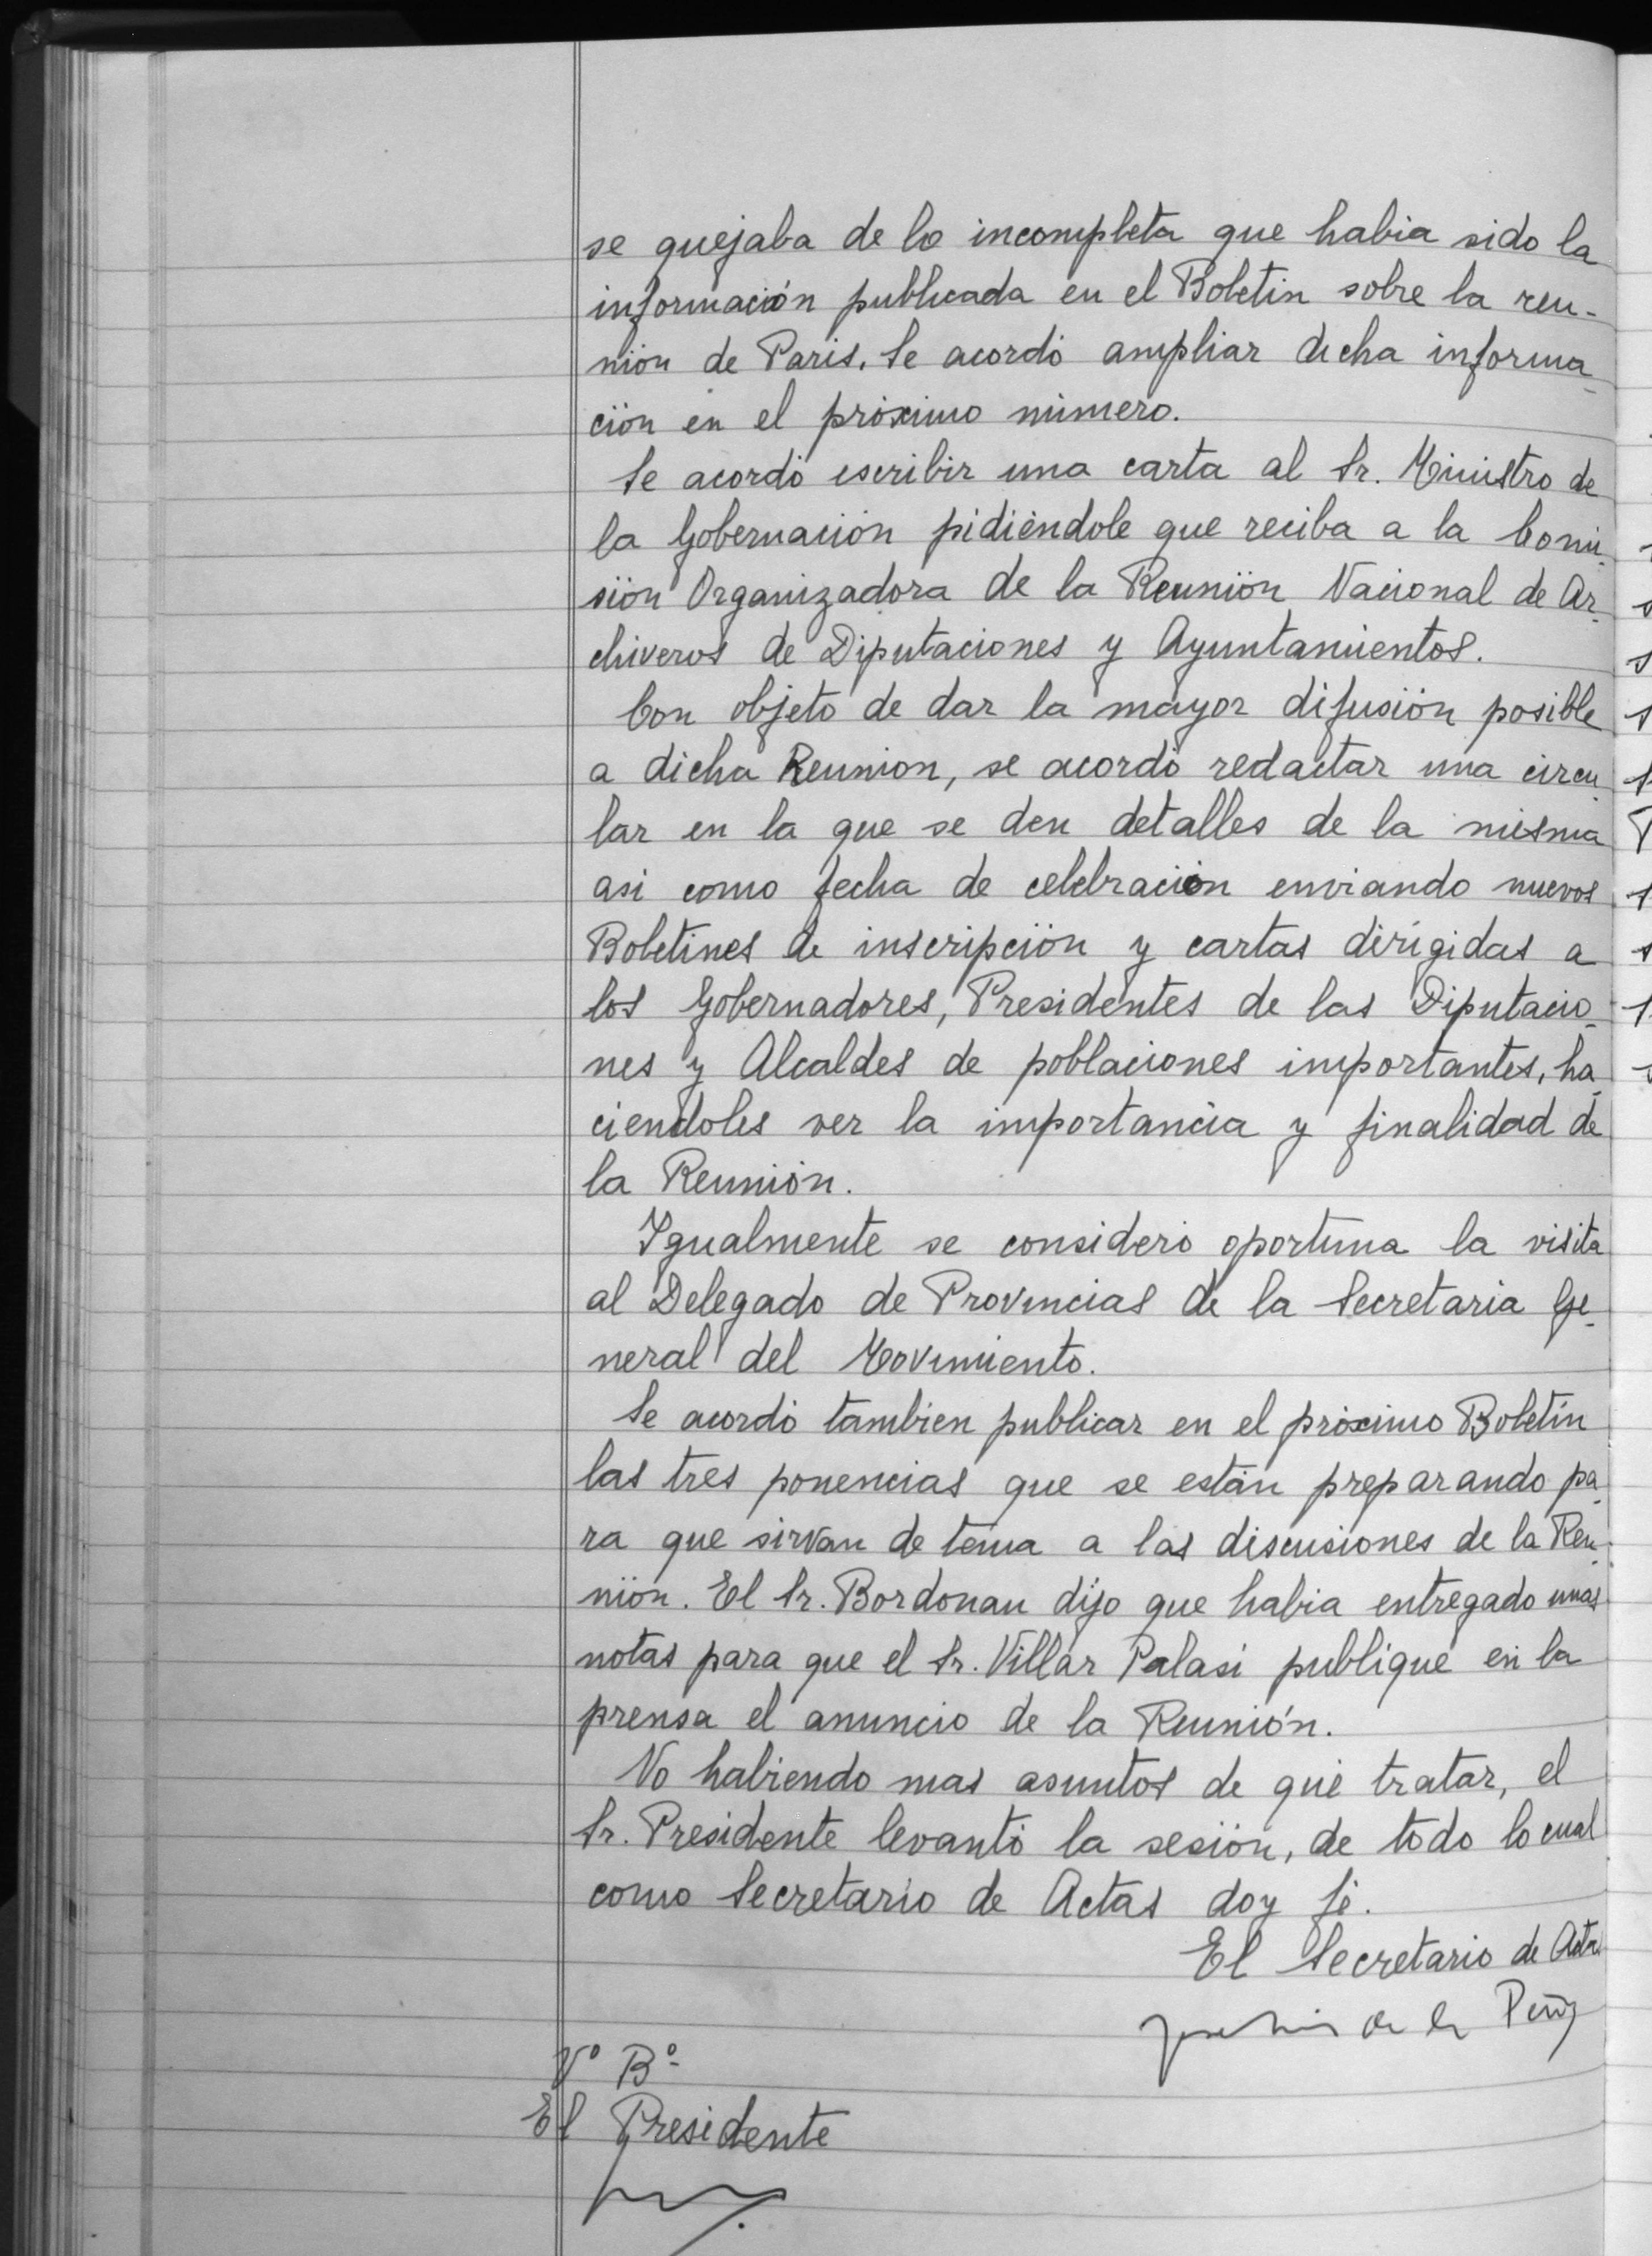 se quejaba de lo incompleta que habia sido la
información publicada en el Boletin sobre la reu-
nión de Paris. Se acordó ampliar dicha informa-
ción en el próximo número.
Se acordó escribir una carta al Sr. Ministro de
la Gobernación pidiéndole que reciba a la Comi-
sión Organizadora de la Reunión Nacional de Ar-
chiveros de Diputaciones y Ayuntamientos.
Con objeto de dar la mayor difusión posible
a dicha Reunion, se acordó redactar una circu-
lar en la que se den detalles de la misma
asi como fecha de celebración enviando nuevos
Boletines de inscripción y cartas dirigidas a
los Gobernadores, Presidentes de las Diputacio-
nes y Alcaldes de poblaciones importantes, ha-
ciendoles ver la importancia y finalidad de
la Reunión.
Igualmente se consideró oportuna la visita
al Delegado de Provincias de la Secretaria Ge-
neral del Movimiento.
Se acordó tambien publicar en el próximo Boletín
las tres ponencias que se están preparando pa-
ra que sirvan de tema a las discusiones de la Reu-
nión. El Sr. Bordonau dijo que habia entregado unas
notas para que el Sr. Villar Palasi publique en la
prensa el anuncio de la Reunión.
No habiendo mas asuntos de qué tratar, el
Sr. Presidente levantó la sesión, de todo lo cual
como Secretario de Actas doy fé.
El Secretario de Actas
de la Peña
Vº Bº
El Presidente